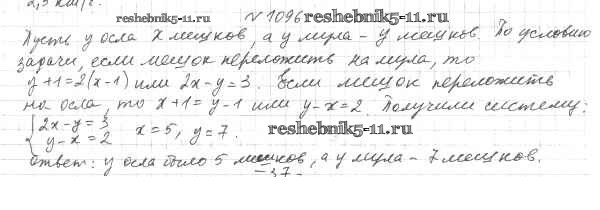 2,5 км/ч.
reshebnik5-11.ru № 1096 reshebnik5-11.ru
Пусть у осла x мешков, а у мула - y мешков. По условию
задачи, если мешок переложить на мула, то
y+1=2(x-1) или 2x-y=3. Если мешок переложить
на осла, то x+1=y-1 или y-x=2. Получили систему:
{2x-y=3
y-x=2 x=5, y=7.
reshebnik5-11.ru
Ответ: у осла было 5 мешков, а у мула - 7 мешков.